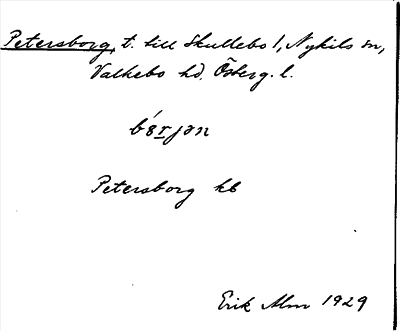 Petersborg, t. till Skullebo 1, Nykils sn,
Valkebo hd. Österg. l.
Petersborg kb
Erik Alm 1929